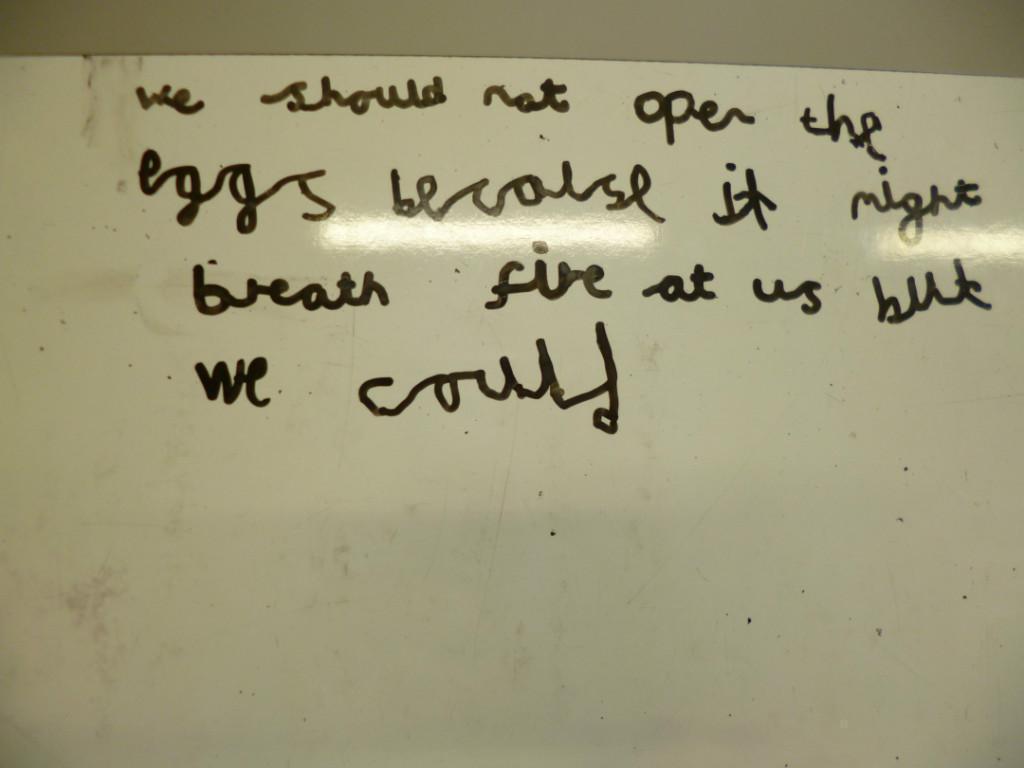 we should not open the
eggs because it might
breath fire at us but
we could